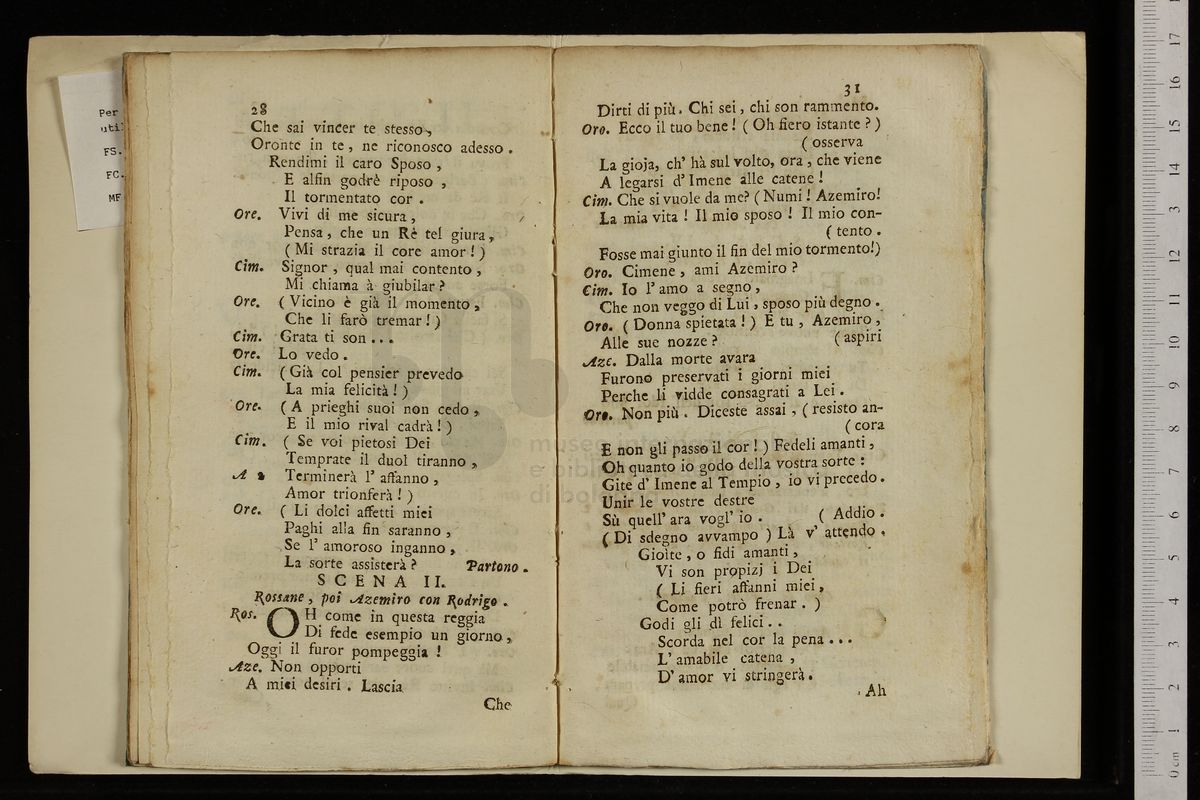 Per
uti
FS.
FC.
MF
28
Che sai vincer te stesso,
Oronte in te, ne riconosco adesso.
Rendimi il caro Sposo,
E alfin godrè riposo,
Il tormentato cor.
Ore. Vivi di me sicura,
Pensa, che un Rè tel giura,
(Mi strazia il core amor!)
Cim. Signor, qual mai contento,
Mi chiama à giubilar?
Ore. (Vicino è già il momento,
Che li farò tremar!)
Cim. Grata ti son...
Ore. Lo vedo.
Cim. (Già col pensier prevedo
La mia felicità!)
Ore. (A prieghi suoi non cedo,
E il mio rival cadrà!)
Cim. (Se voi pietosi Dei
Temprate il duol tiranno,
A 2 Terminerà l'affanno,
Amor trionferà!)
Ore. (Li dolci affetti miei
Paghi alla fin saranno,
Se l'amoroso inganno,
La sorte assisterà? Partono.
SCENA II.
Rossane, poi Azemiro con Rodrigo.
Ros. OH come in questa reggia
Di fede esempio un giorno,
Oggi il furor pompeggia!
Aze. Non opporti
A miei desiri. Lascia
Che
31
Dirti di più. Chi sei, chi son rammento.
Oro. Ecco il tuo bene! (Oh fiero istante?)
(osserva
La gioja, ch' hà sul volto, ora, che viene
A legarsi d'Imene alle catene!
Cim. Che si vuole da me? (Numi! Azemiro!
La mia vita! Il mio sposo! Il mio con-
(tento.
Fosse mai giunto il fin del mio tormento!)
Oro. Cimene, ami Azemiro?
Cim. Io l'amo a segno,
Che non veggo di Lui, sposo più degno.
Oro. (Donna spietata!) E tu, Azemiro,
Alle sue nozze? (aspiri
Aze. Dalla morte avara
Furono preservati i giorni miei
Perche li vidde consagrati a Lei.
Oro. Non più. Diceste assai, (resisto an-
(cora
E non gli passo il cor!) Fedeli amanti,
Oh quanto io godo della vostra sorte:
Gite d'Imene al Tempio, io vi precedo.
Unir le vostre destre
Sù quell'ara vogl'io. (Addio.
(Di sdegno avvampo) Là v'attendo.
Gioite, o fidi amanti,
Vi son propizj i Dei
(Li fieri affanni miei,
Come potrò frenar.)
Godi gli dì felici..
Scorda nel cor la pena...
L'amabile catena,
D'amor vi stringerà.
Ah
museo internazionale
e biblioteca della musica
di bologna